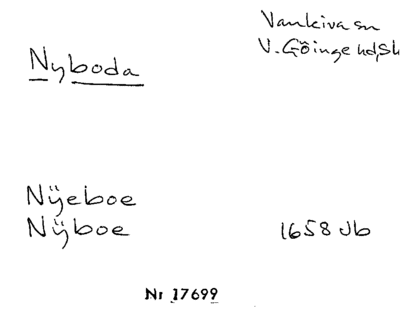 Vankiva sn
V. Göinge hd, Sk
Nyboda
Nÿeboe
Nÿboe 1658 Jb
Nr 17699